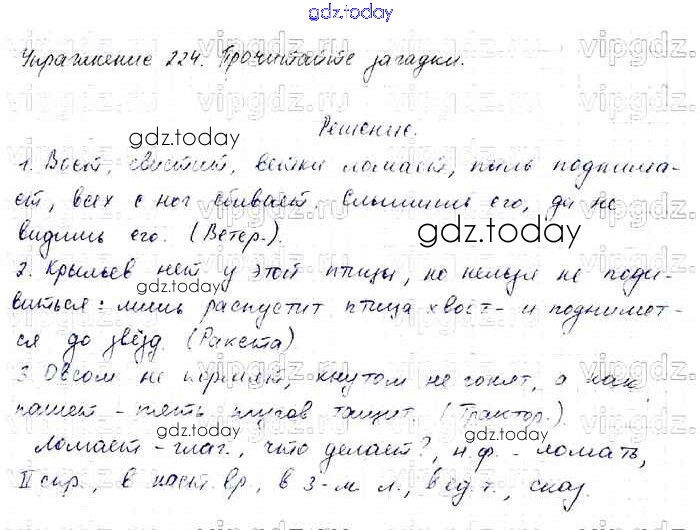 gdz.today
Упражнение 224. Прочитайте загадки.
Решение.
1. Воет, свистит, ветки ломает, пыль поднима-
ет, всех с ног сбивает. Слышишь его, да не
видишь его. (Ветер.).
2. Крыльев нет у этой птицы, но нельзя не поди-
виться: лишь распустит птица хвост - и поднимет-
ся до звёзд. (Ракета)
3. Овсом не кормят, кнутом не гонят, а как
пашет - пять плугов тащит. (Трактор.).
Ломает - глаг., что делает?, н.ф. - ломать,
II спр., в наст. вр., в 3-м л., в ед. ч., сказ.
gdz.today
gdz.today
gdz.today
gdz.today
gdz.today
vipgdz.ru